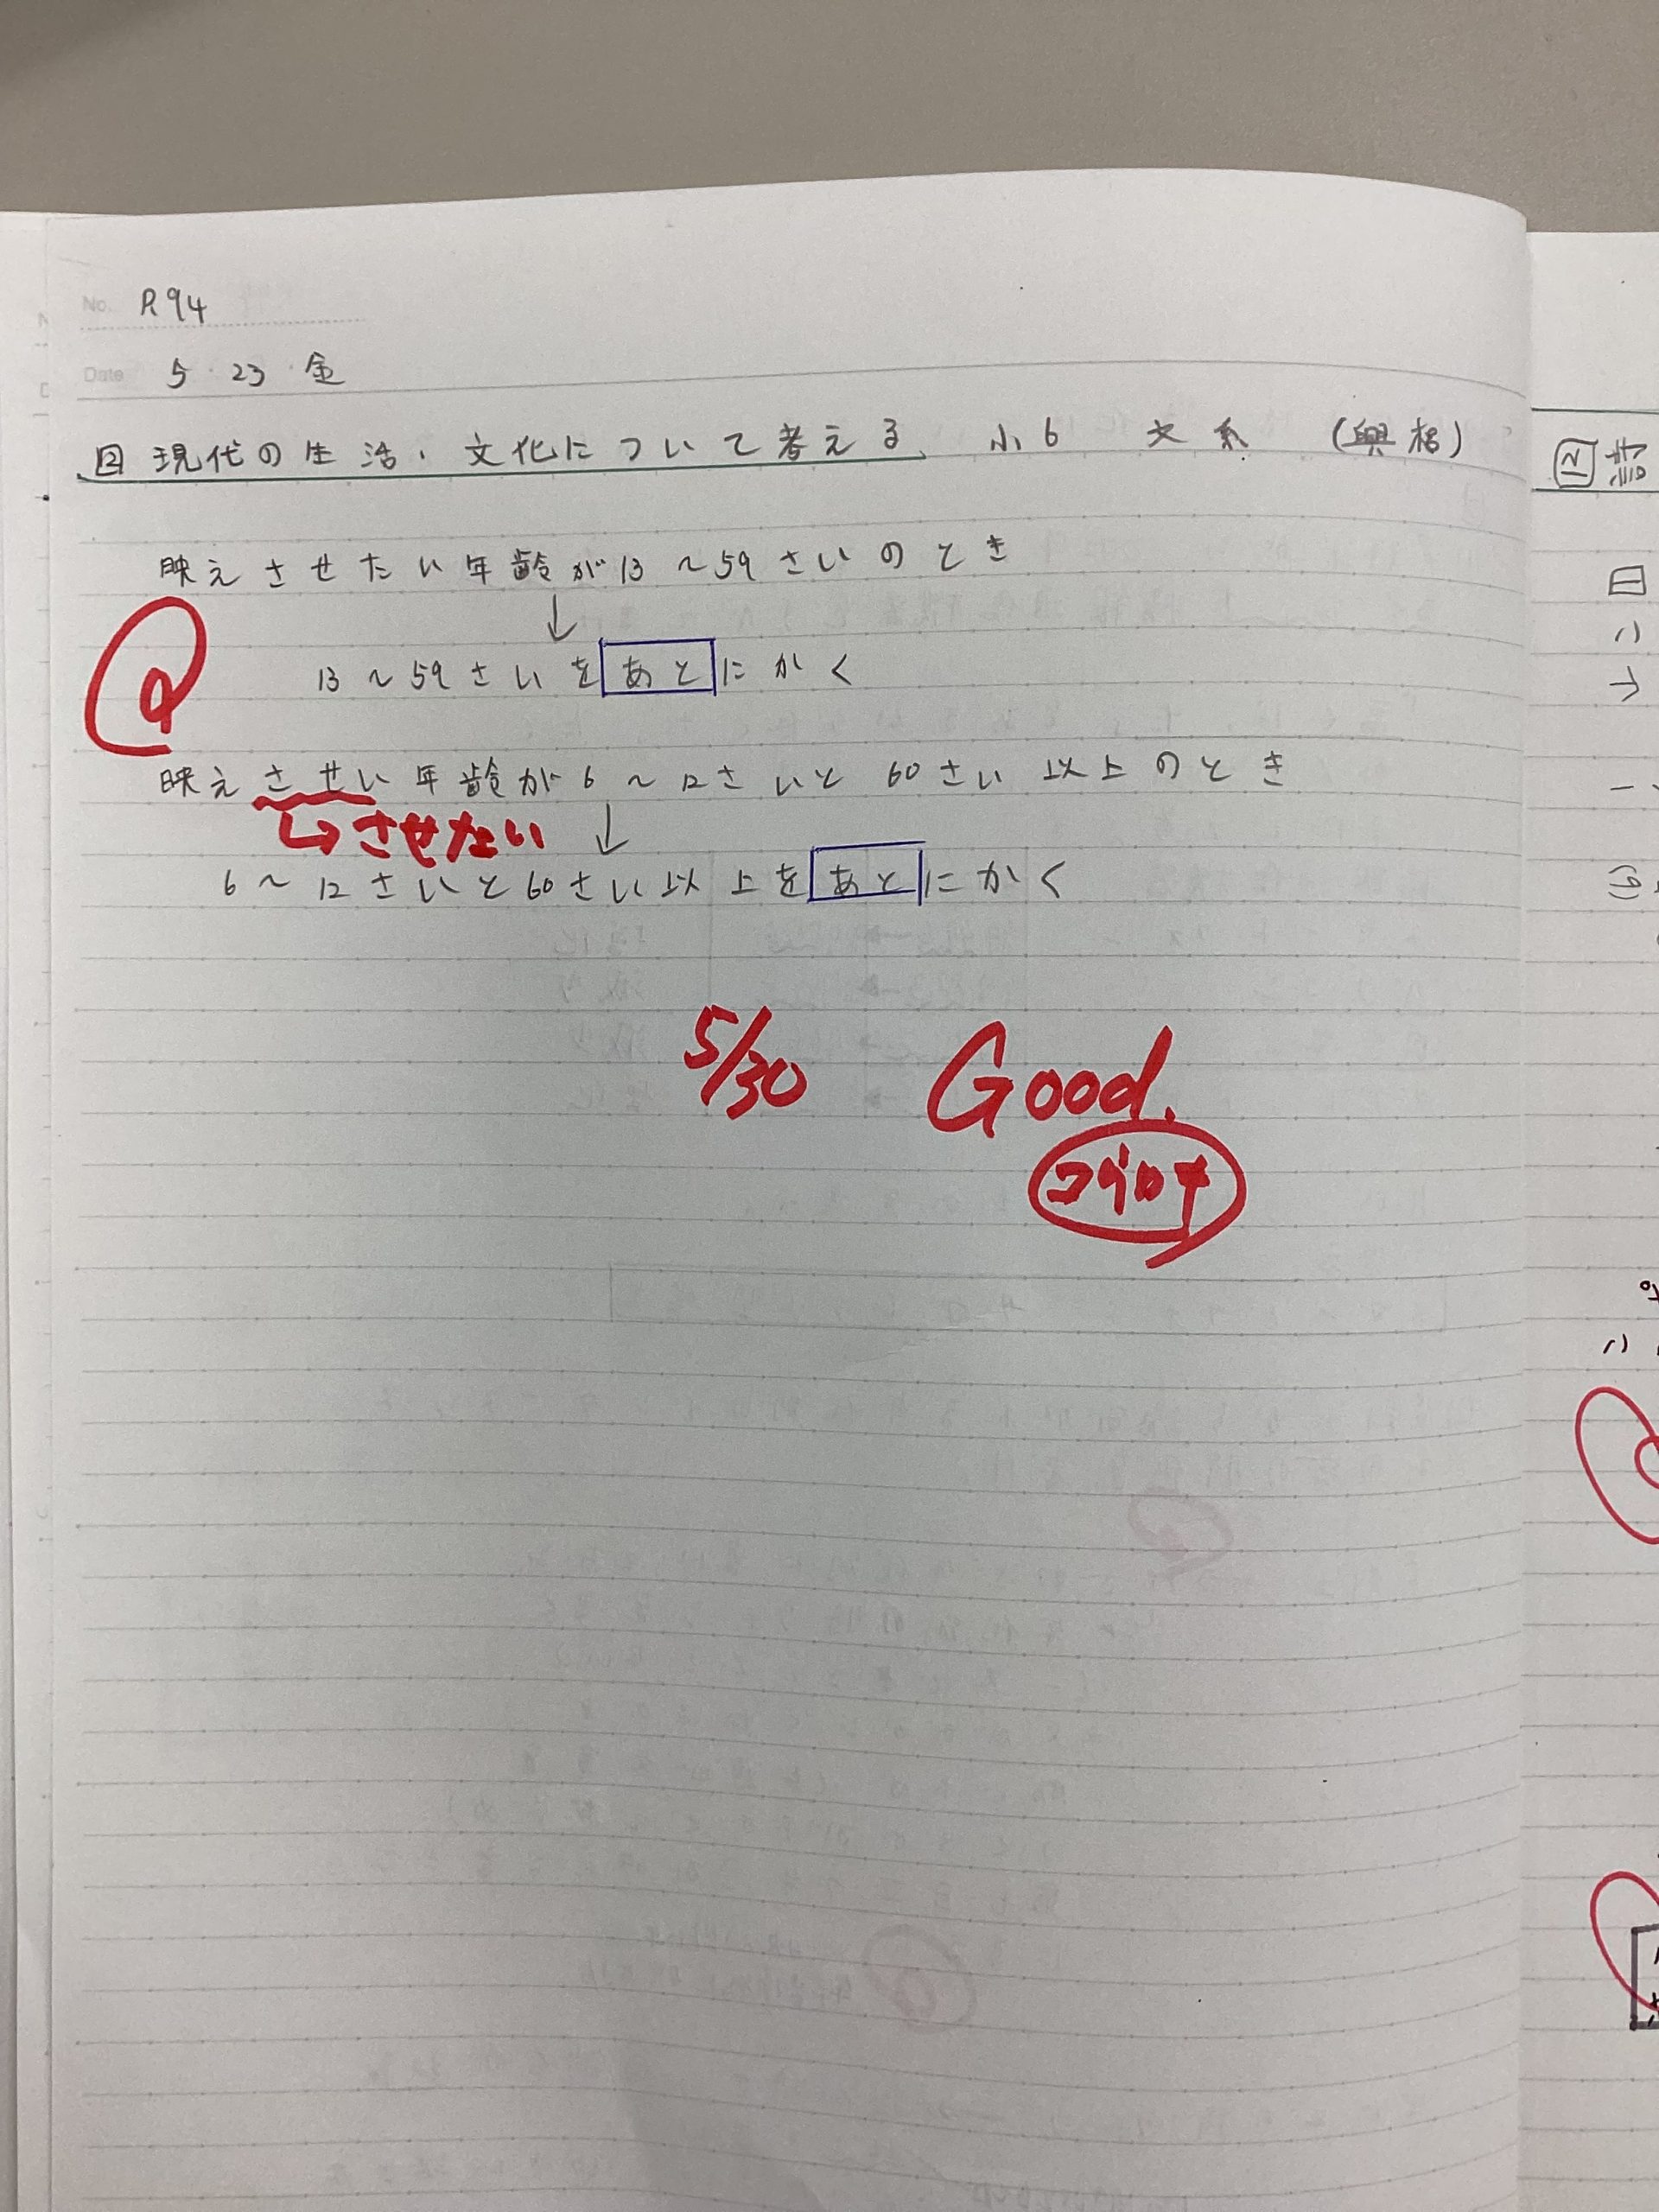 No. P.94
Date 5・23・金
国 現代の生活・文化について考える 小6 文系
映えさせたい年齢が13〜59さいのとき
↓
13〜59さいをあとにかく
映えさせい年齢が6〜12さいと60さい以上のとき
↳させたい
↓
6〜12さいと60さい以上をあとにかく
5/30 Good.